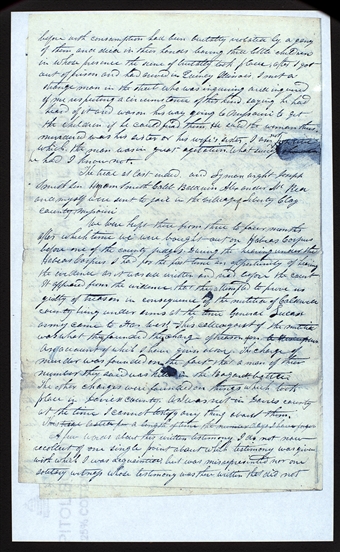 before with consumption had been brutally violated by a gang
of them, and died in their hands leaving three little children
in whose presence the scene of brutality took place, after I got
out of prison and had arived in Quincy Illinois, I met a
strange man in the street who was inquiring and inquired
of me respecting a circumstance of this kind, saying he had
heard of it and was on his way going to Missouri to get
the children if he could find them. He said the woman thus
murdered was his sister or his wife's sister, I am not
which, the man was in great agitation. What
he had I know not.
The trial at last ended, and Lyman wight Joseph
Smith Jun Hyrum Smith Caleb Baldwin Alexander McRea
and myself were sent to jail in the village of Liberty Clay
County Missouri
We were kept there from three to four months
after which time we were brought out on Habeas Corpus
before one of the county judges. During the hearing under the
Habeas Corpus I had for the first time an opportunity of hearing
the evidence as it was all written and read before the court
It appeared from the evidence that they attempted to prove us
guilty of treason in consequence of the militia of Caldwell
County being under arms at the time General Lucas
army came to Far West. This calling out of the militia
was what they founded the charge of treason
an account of which I have given above. The charge of
murder was founded on the fact that a man of their
number they said was killed in the Bogard battle
The other charges were founded on things which took
place in Davies County. As I was not in Davies County
at the time I cannot testify any thing about them.
A few words about this written testimony I do not now
recollect of one single point about which testimony was given
with which I was acquainted but was misrepresented nor one
solitary witness whose testimony was there written that did not